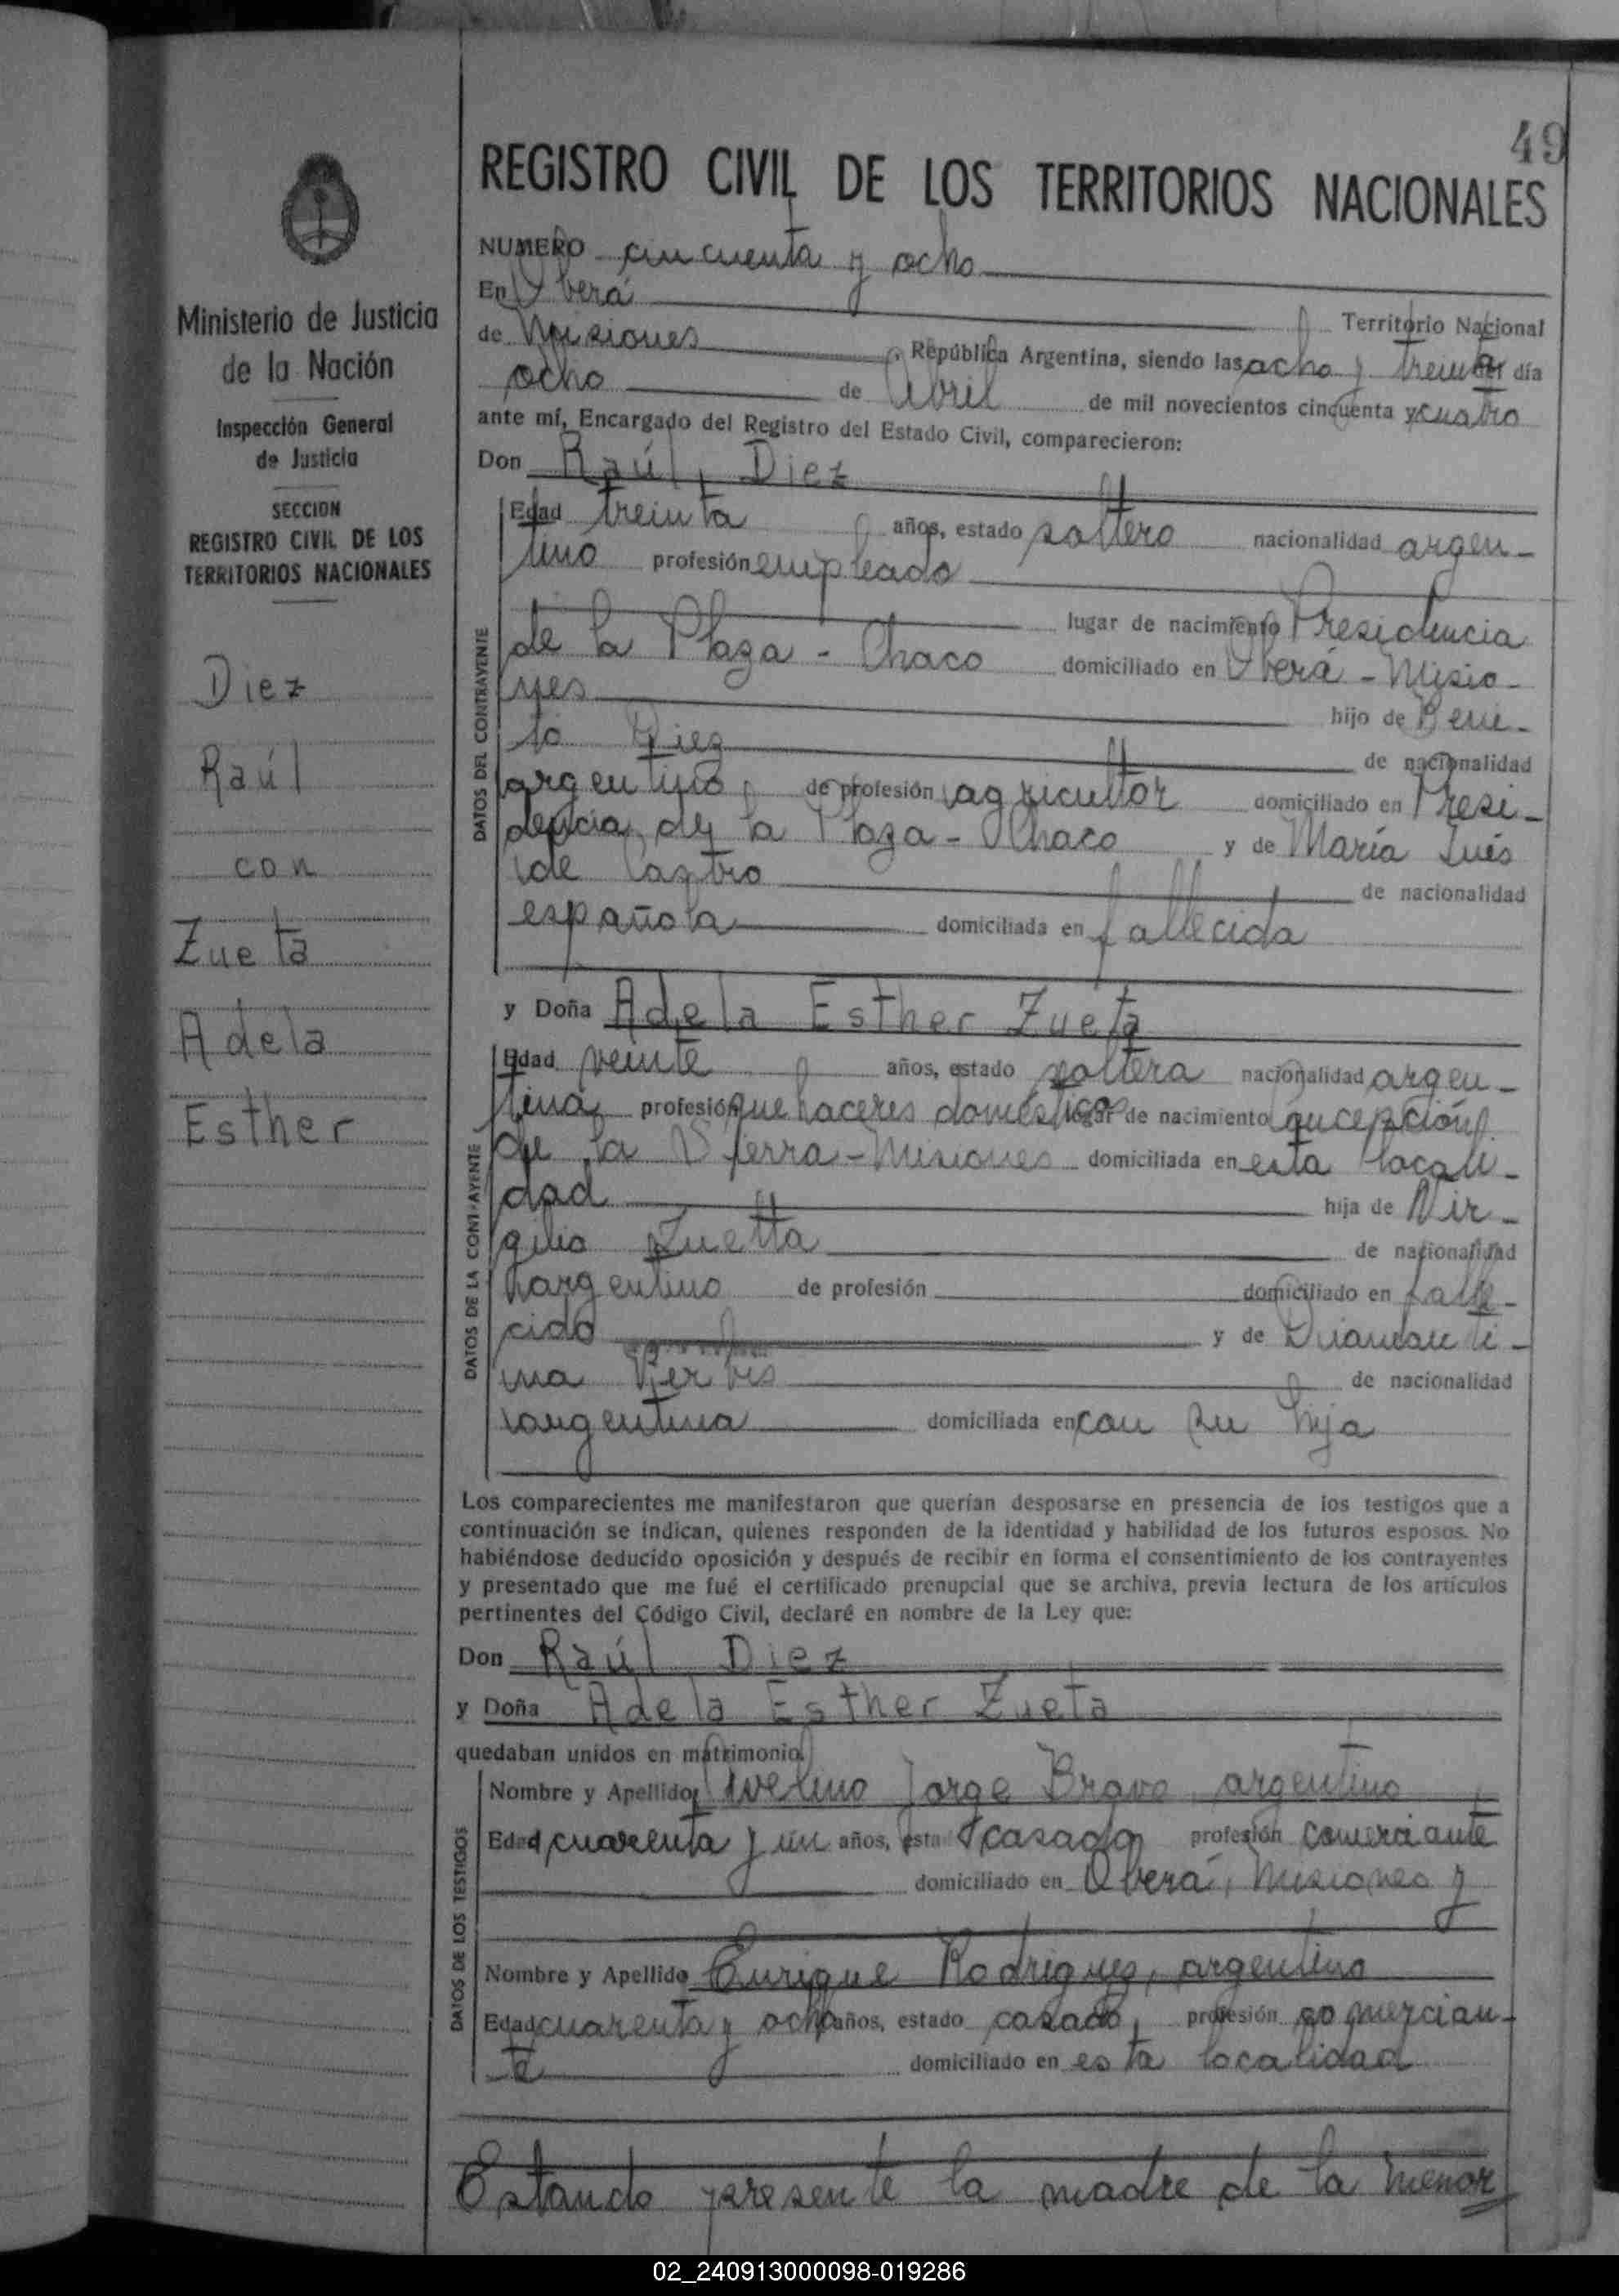 49
REGISTRO CIVIL DE LOS TERRITORIOS NACIONALES
Ministerio de Justicia
de la Nación
Inspección General
de Justicia
SECCION
REGISTRO CIVIL DE LOS
TERRITORIOS NACIONALES
Diez
Raúl
con
Zueta
Adela
Esther
NUMERO cincuenta y ocho
En Oberá Territorio Nacional
de Misiones, República Argentina, siendo las ocho y treinta del día
ocho de Abril de mil novecientos cincuenta y cuatro
ante mí, Encargado del Registro del Estado Civil, comparecieron:
Don Raúl Diez
DATOS DEL CONTRAYENTE
Edad treinta años, estado soltero nacionalidad argen-
tino profesión empleado
lugar de nacimiento Presidencia
de la Plaza - Chaco domiciliado en Oberá - Misio-
nes hijo de Beni-
to Diez de nacionalidad
argentino de profesión agricultor domiciliado en Presi-
dencia de la Plaza - Chaco y de María Inés
de Castro de nacionalidad
española domiciliada en fallecida
y Doña Adela Esther Zueta
DATOS DE LA CONTRAYENTE
Edad veinte años, estado soltera nacionalidad argen-
tina profesión quehaceres domésticos lugar de nacimiento Concepción
de la Sierra - Misiones domiciliada en esta locali-
dad hija de Vir-
gilio Zuetta de nacionalidad
argentino de profesión domiciliado en falle-
cido y de Diamanti-
na de nacionalidad
argentina domiciliada en con su hija
Los comparecientes me manifestaron que querían desposarse en presencia de los testigos que a
continuación se indican, quienes responden de la identidad y habilidad de los futuros esposos. No
habiéndose deducido oposición y después de recibir en forma el consentimiento de los contrayentes
y presentado que me fué el certificado prenupcial que se archiva, previa lectura de los artículos
pertinentes del Código Civil, declaré en nombre de la Ley que:
Don Raúl Diez
y Doña Adela Esther Zueta
quedaban unidos en matrimonio.
DATOS DE LOS TESTIGOS
Nombre y Apellido Avelino Jorge Bravo, argentino
Edad cuarenta y un años, estado casado, profesión comerciante
domiciliado en Oberá, Misiones y
Nombre y Apellido Enrique Rodrigues, argentino
Edad cuarenta y ocho años, estado casado, profesión comercian-
te domiciliado en esta localidad
Estando presente la madre de la menor
02_240913000098-019286